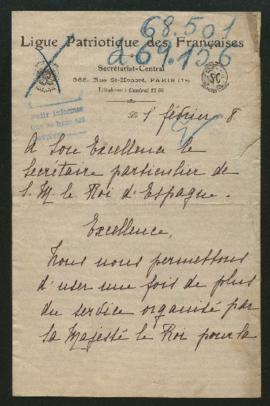 68.501
269.156
Ligue Patriotique des Françaises
Secrétariat-Central
368, Rue St-Honoré, PARIS (1er)
Téléphone: Central
Le 1 février 8
A Son Excellence le
Secrétaire particulier de
S. M. le Roi d'Espagne.
Excellence,
Nous nous permettons
d'user une fois de plus
du service organisé par
Sa Majesté le Roi pour la